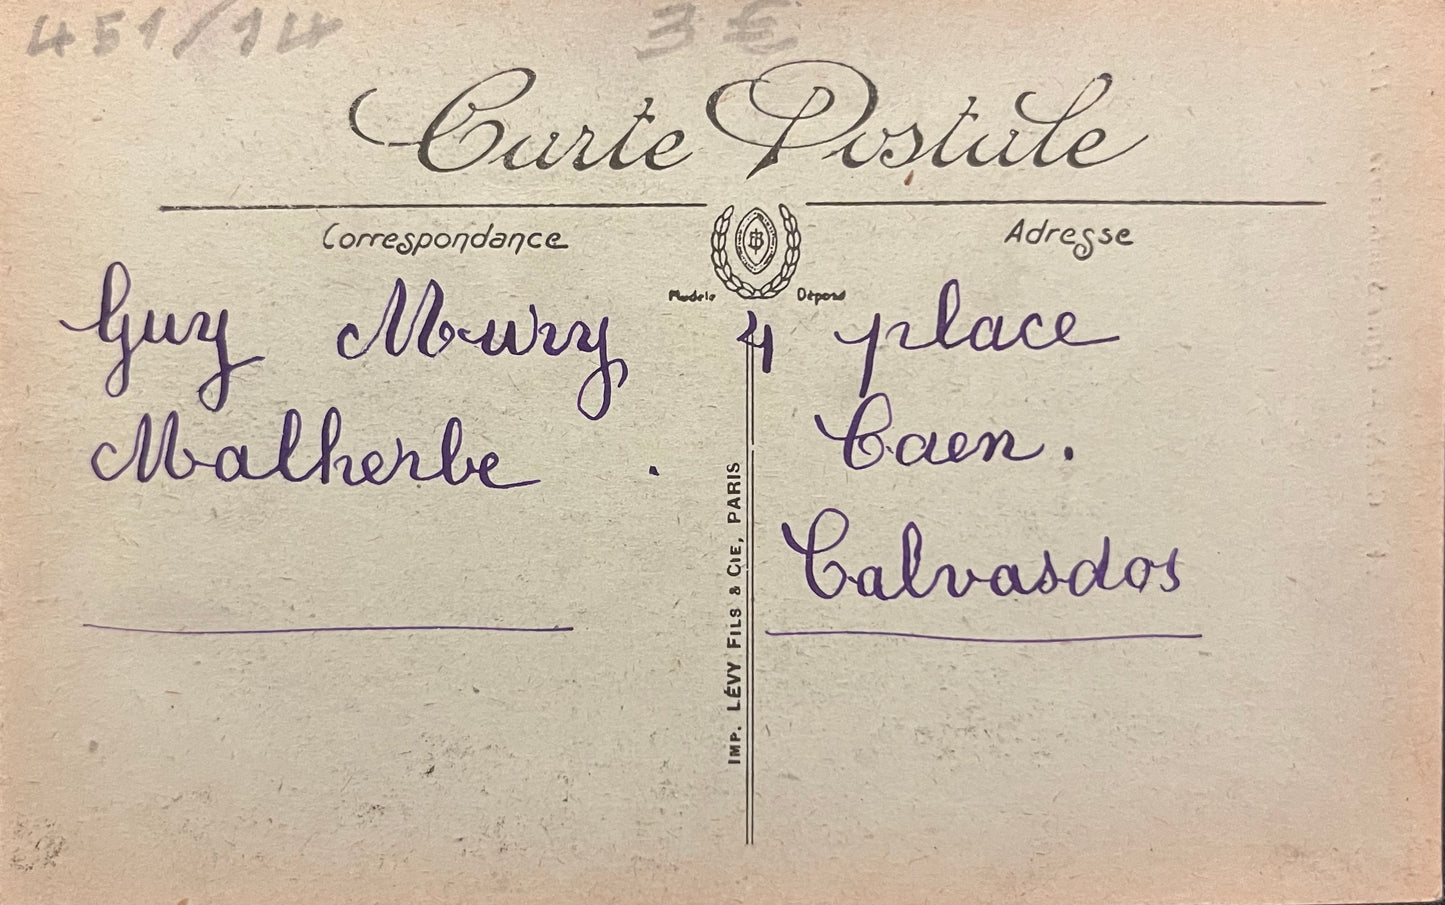 451/14 3 €
Carte Postale
Correspondance
Adresse
Modèle Déposé
Guy Mury 4 place
Malherbe . Caen.
Calvasdos
IMP. LÉVY FILS & CIE, PARIS